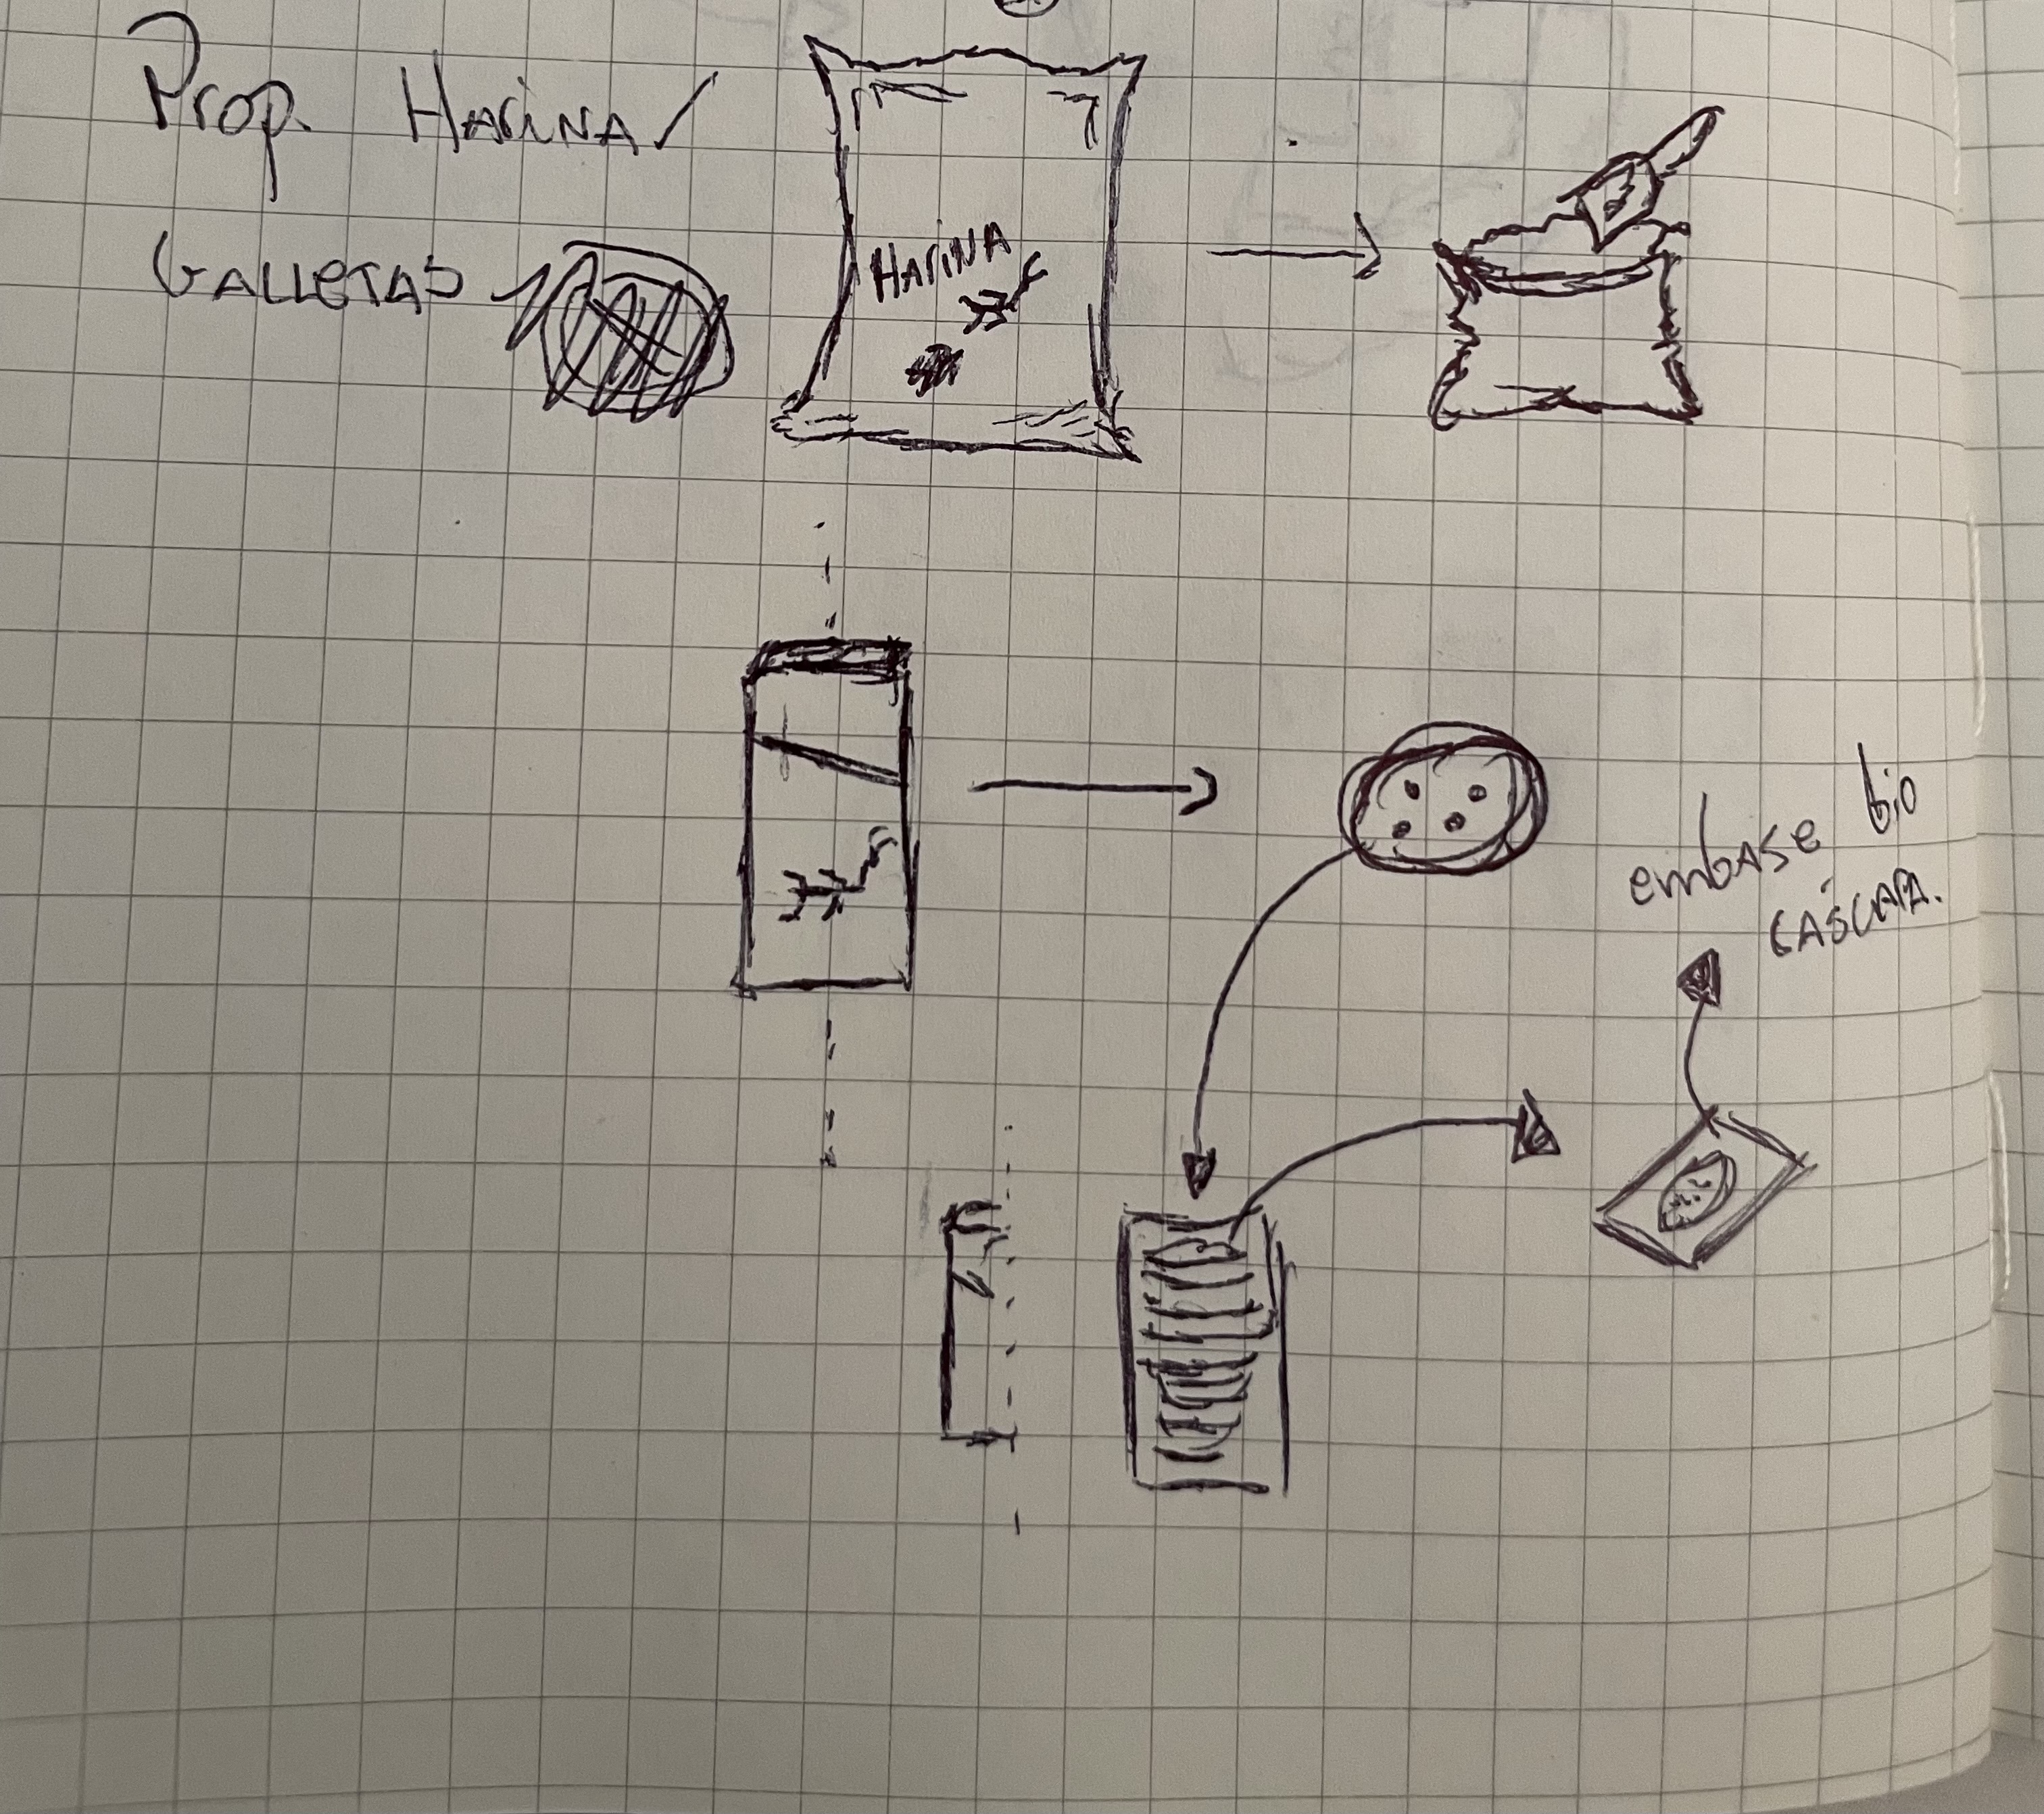 Prop. Harina/
Galletas
Harina
embase bio
cascara.